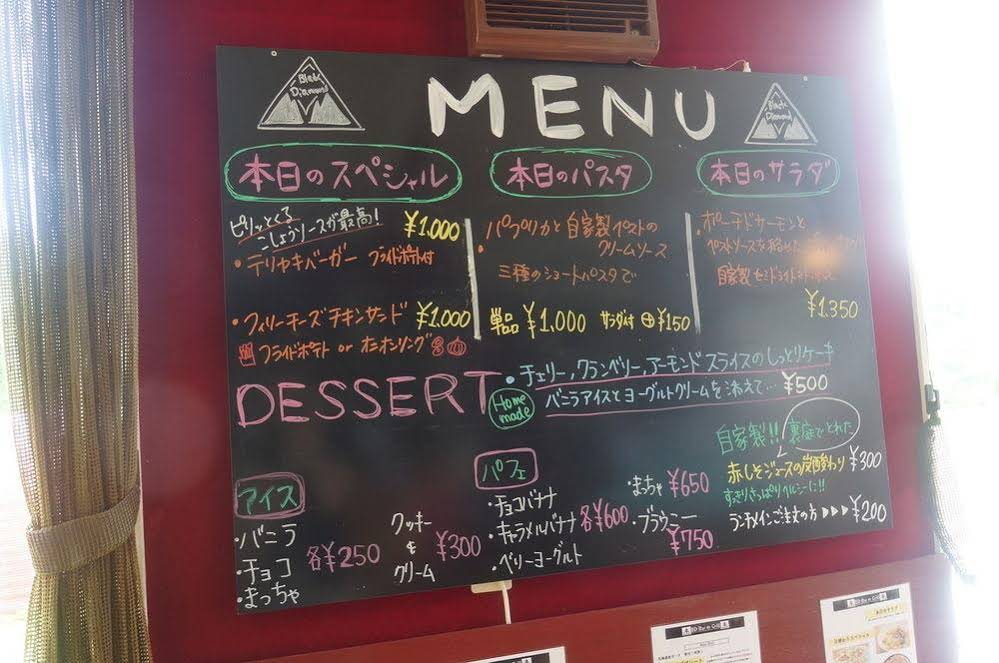 Black
Diamond
MENU
Black
Diamond
本日のスペシャル
ピリッとくる
こしょうソースが最高!
¥1,000
・テリヤキバーガー フライドポテト付
・フィリーチーズチキンサンド ¥1,000
フライドポテト or オニオンリング
本日のパスタ
・パプリカと自家製ペストの
クリームソース
三種のショートパスタで
単品 ¥1,000 サラダ付 ⊕¥150
本日のサラダ
・ポーチドサーモンと
ペストソースを
自家製セミドライトマト
¥1,350
DESSERT
Home
made
・チェリー,クランベリー,アーモンドスライスのしっとりケーキ
バニラアイスとヨーグルトクリームを添えて… ¥500
アイス
・バニラ
・チョコ
・まっちゃ
各¥250
クッキー
&
クリーム
¥300
パフェ
・チョコバナナ
・キャラメルバナナ
・ベリーヨーグルト
各¥600
・まっちゃ ¥650
・ブラウニー
¥750
自家製!! 裏庭でとれた
赤しそジュースの炭酸割り ¥300
すっきりさっぱりヘルシーに!!
ランチメインご注文の方 ▶▶▶ ¥200
BD Bar & Grill